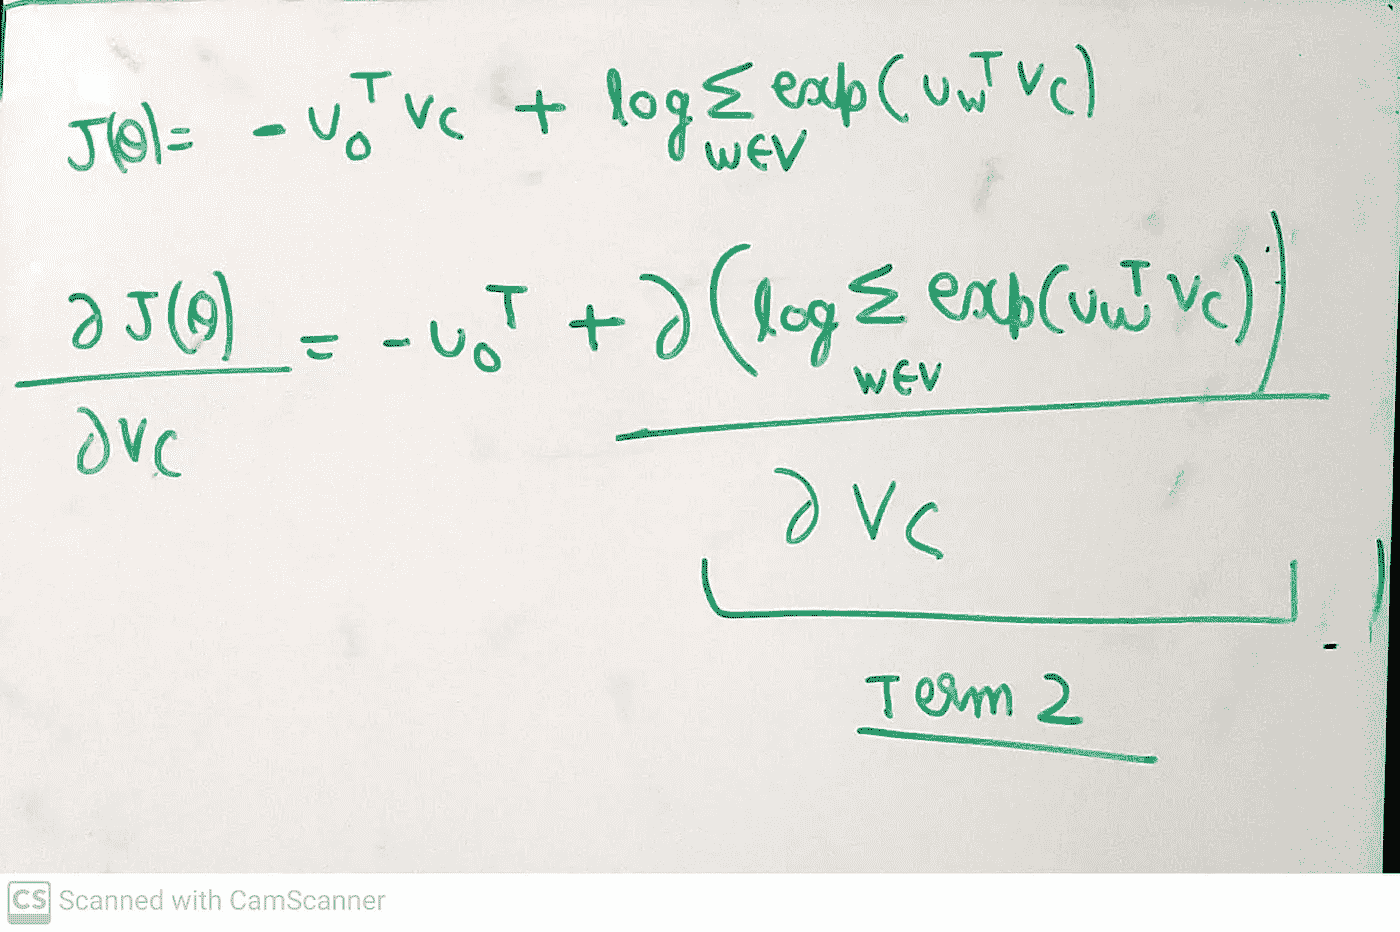 J(θ) = - u₀ᵀ v_c + log Σ exp(u_wᵀ v_c)
w∈V
∂J(θ) = - u₀ᵀ + ∂(log Σ exp(u_wᵀ v_c))
w∈V
∂v_c
∂v_c
Term 2
CS Scanned with CamScanner